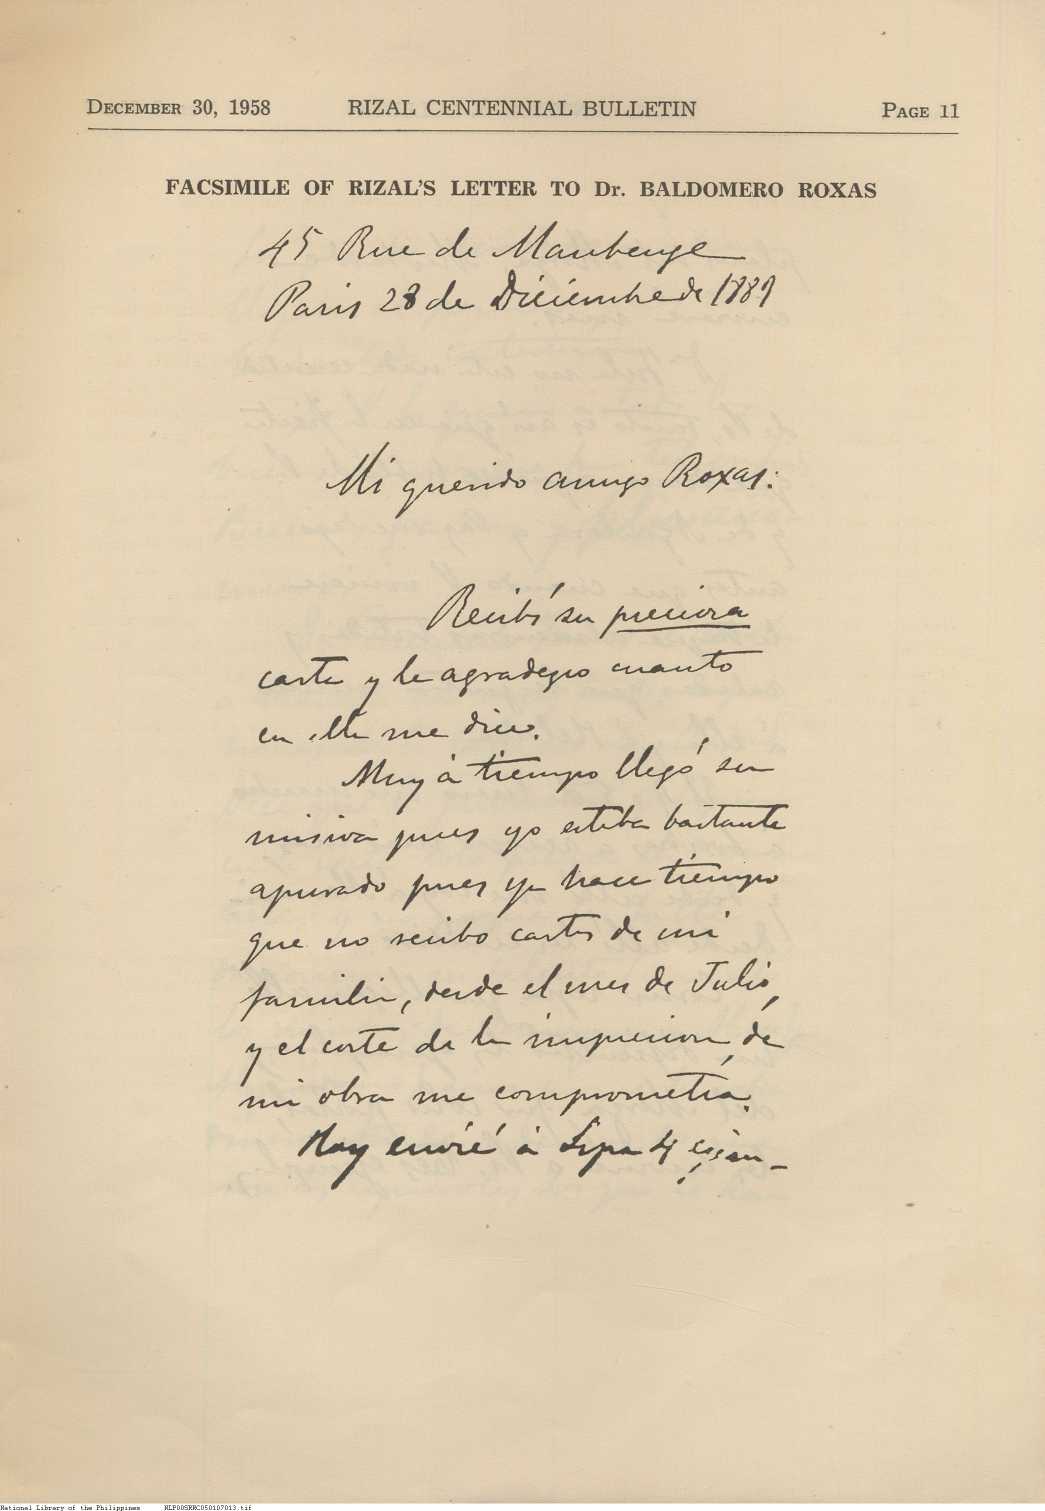 DECEMBER 30, 1958 RIZAL CENTENNIAL BULLETIN PAGE 11
FACSIMILE OF RIZAL'S LETTER TO Dr. BALDOMERO ROXAS
45 Rue de Maubeuge
Paris 28 de Diciembre de 1889
Mi querido amigo Roxas:
Recibí su preciosa
carta y le agradezco cuanto
en ella me dice.
Muy à tiempo llegó su
misiva pues yo estaba bastante
apurado pues ya hace tiempo
que no recibo cartas de mi
familia, desde el mes de Julio,
y el coste de la impresion de
mi obra me comprometía.
Hoy envié à Lipa 4 ejem-
National Library of the Philippines NLP00SRRC050107013.tif